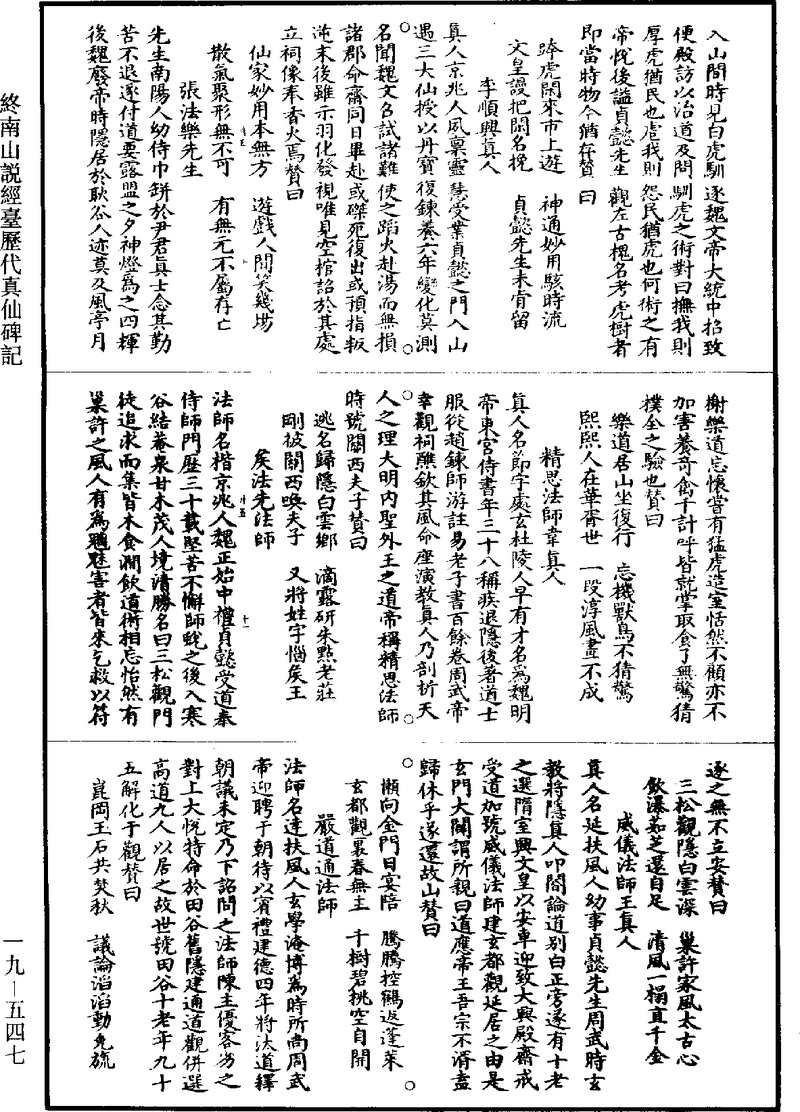 入山間時見白虎馴逐魏文帝大統中招致
便殿訪以治道及問馴虎之術對曰撫我則
厚虎猶民也虐我則怨民猶虎也何術之有
帝悅後謚貞懿先生觀左古槐名考虎樹者
即當時物今猶存贊曰
跨虎閑來市上遊　神通妙用駭時流
文皇謾把閑名挽　貞懿先生未肯留
李順興真人
真人京兆人夙稟靈慧受業貞懿之門入山
遇三大仙授以丹寶復鍊養六年變化莫測
名聞魏文召試諸難使之蹈火赴湯而無損
諸郡命齋同日畢赴或磔死復出或預指叛
逆末後雖示羽化發視唯見空棺詔於其處
立祠像奉香火焉贊曰
仙家妙用本無方　遊戲人間笑幾場
散氣聚形無不可　有無元不屬存亡
張法樂先生
先生南陽人幼侍巾缾於尹君真士念其勤
苦不退遂付道要露盟之夕神燈為之四輝
後魏廢帝時隱居於耿谷人迹莫及風亭月
榭樂道忘懷嘗有猛虎造室恬然不顧亦不
加害養奇禽千計呼皆就掌取食了無驚猜
樸全之驗也贊曰
樂道居山坐復行　忘機獸鳥不猜驚
熙熙人在華胥世　一段淳風畫不成
精思法師韋真人
真人名節字處玄杜陵人早有才名為魏明
帝東宮侍書年三十八稱疾退隱後著道士
服從趙鍊師游註易老子書百餘卷周武帝
幸觀祠醮欽其風命座演教真人乃剖析天
人之理大明內聖外王之道帝稱精思法師
時號關西夫子贊曰
逃名歸隱白雲鄉　滴露研朱點老莊
剛被關西喚夫子　又將姓字惱侯王
侯法先法師
法師名楷京兆人魏正始中禮貞懿受道奉
侍師門歷三十載堅苦不懈師蛻之後入寒
谷結菴泉甘木茂人境清勝名曰三松觀門
徒追求而集皆木食澗飲道術相忘怡然有
巢許之風人有為魑魅害者皆來乞救以符
逐之無不立安贊曰
三松觀隱白雲深　巢許家風太古心
飲瀑茹芝還自足　清風一榻直千金
威儀法師王真人
真人名延扶風人幼事貞懿先生周武時玄
教將隱真人叩閤論道別白正旁遂有十老
之選隋室興文皇以安車迎致大興殿齋戒
受道加號威儀法師建玄都觀延居之由是
玄門大闡謂所親曰道應帝王吾宗不濟盍
歸休乎遂還故山贊曰
懶向金門日宴陪　騰騰控鶴返蓬萊
玄都觀裏春無主　千樹碧桃空自開
嚴道通法師
法師名達扶風人玄學淹博為時所尚周武
帝迎聘于朝待以賓禮建德四年將汰道釋
朝議未定乃下詔問之法師陳主優客劣之
對上大悅特命於田谷舊隱建通道觀併選
高道九人以居之故世號田谷十老年九十
五解化于觀贊曰
崑岡玉石共焚秋　議論滔滔動冕旒
終南山説經臺歷代真仙碑記
一九—五四七